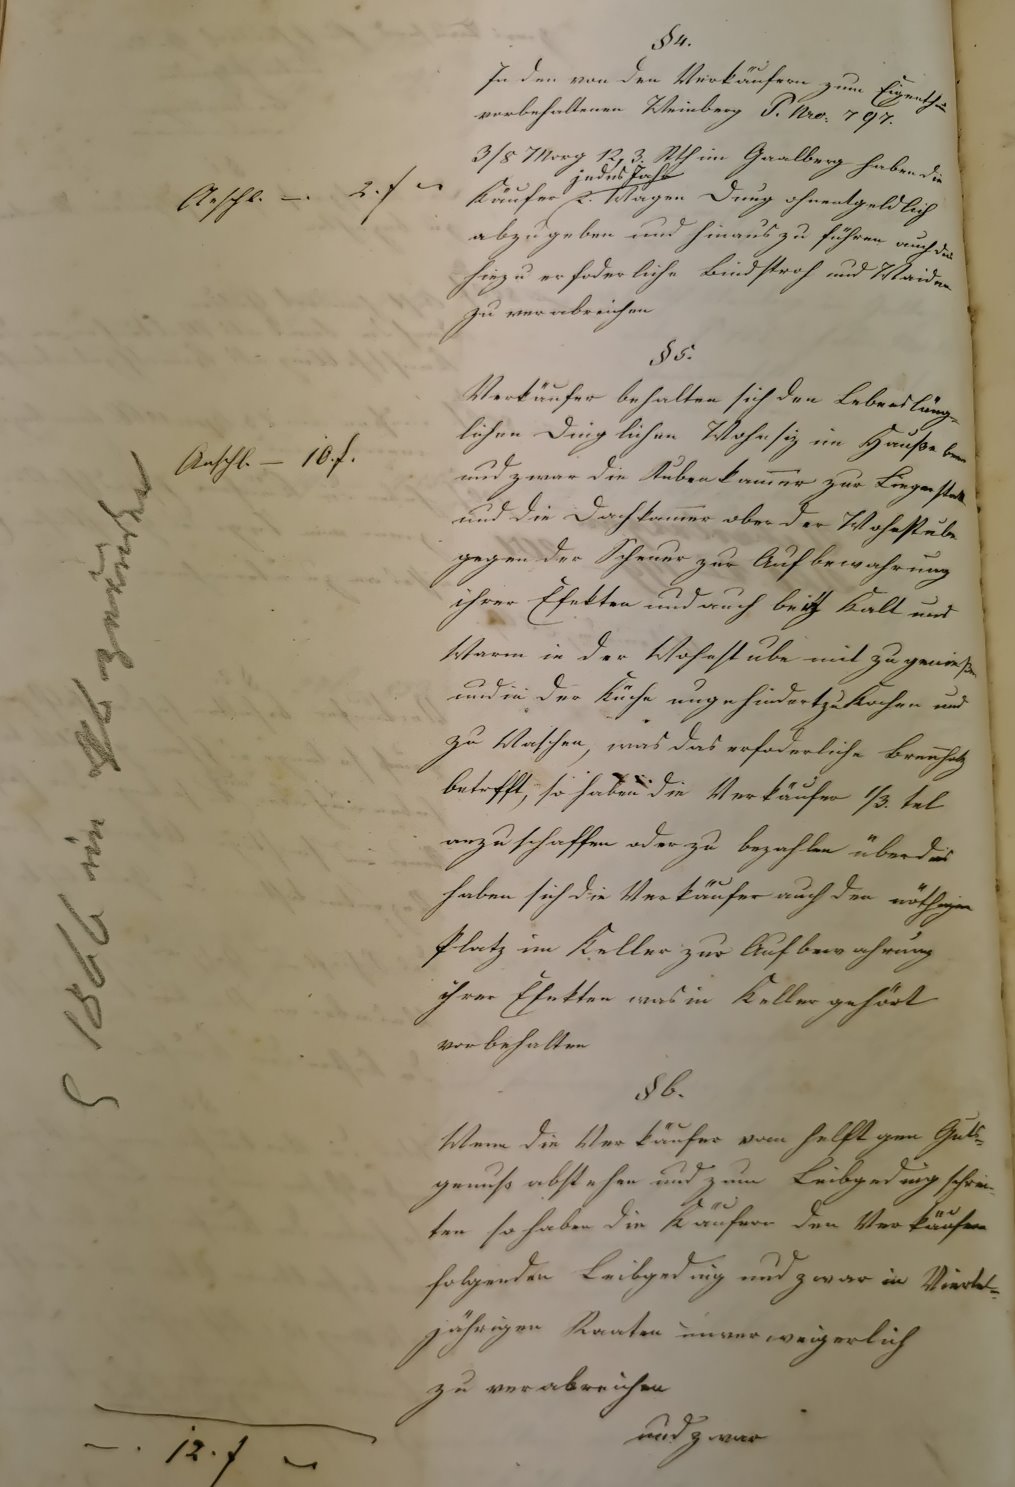 § 4.
In den von den Verkäufern zum Eigenthum
vorbehaltenen Weinberg P. Nro: 797.
3/8 Morg 12,3. Rth im Gaalberg haben die
jedes Jahr
Anschl. —. 2. f —
Käufer 2. Wagen Dung ohnentgeldlich
abzugeben und hinaus zu führen auch das
hiezu erfoderliche Bindstroh und Waiden
zu verabreichen
§ 5.
Verkäufer behalten sich den Lebensläng-
lichen Dinglichen Wohnsiz im Hauße bevor
Anschl. — 10. f.
und zwar die Stubenkammer zur Liegerstatt
und die Dachkammer ober der Wohnstube
gegen der Scheuer zur Aufbewahrung
ihrer Efekten und auch bei Kalt und
Warm in der Wohnstube mit zu genießen
und in der Küche ungehindert zu Kochen und
zu Waschen, was das erfoderliche Brennholz
betrfft, so haben die Verkäufer 1/3. tel
anzuschaffen oder zu bezahlen überdies
haben sich die Verkäufer auch den nöthigen
Platz im Keller zur Aufbewahrung
ihrer Efekten was in Keller gehört
vorbehalten
1866 in
§ 6.
Wenn die Verkäufer vom helftgen Guts-
genuß abstehen und zum Leibgeding schrei-
ten so haben die Käufern den Verkäufern
folgenden Leibgeding und zwar in Viertel-
jährigen Raaten unverweigerlich
zu verabreichen
und zwar
—. 12. f —